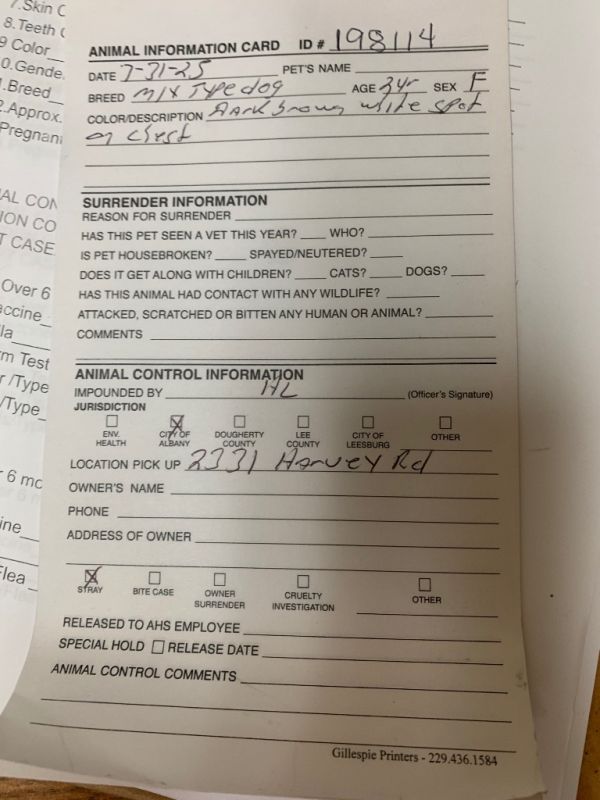 7.Skin C
8.Teeth
9 Color
0.Gende
.Breed
2.Approx.
Pregnan
AL CON
ION CO
T CASE
Over 6
accine
la
m Test
r /Type
/Type
6 mo
ine
Flea
ANIMAL INFORMATION CARD ID # 198114
DATE 7-31-25 PET'S NAME
BREED mix Type dog AGE 3yr SEX F
COLOR/DESCRIPTION Dark brown white spot
on chest
SURRENDER INFORMATION
REASON FOR SURRENDER
HAS THIS PET SEEN A VET THIS YEAR? WHO?
IS PET HOUSEBROKEN? SPAYED/NEUTERED?
DOES IT GET ALONG WITH CHILDREN? CATS? DOGS?
HAS THIS ANIMAL HAD CONTACT WITH ANY WILDLIFE?
ATTACKED, SCRATCHED OR BITTEN ANY HUMAN OR ANIMAL?
COMMENTS
ANIMAL CONTROL INFORMATION
IMPOUNDED BY HL (Officer's Signature)
JURISDICTION
ENV. HEALTH CITY OF ALBANY DOUGHERTY COUNTY LEE COUNTY CITY OF LEESBURG OTHER
LOCATION PICK UP 2331 Harvey Rd
OWNER'S NAME
PHONE
ADDRESS OF OWNER
STRAY BITE CASE OWNER SURRENDER CRUELTY INVESTIGATION OTHER
RELEASED TO AHS EMPLOYEE
SPECIAL HOLD RELEASE DATE
ANIMAL CONTROL COMMENTS
Gillespie Printers - 229.436.1584